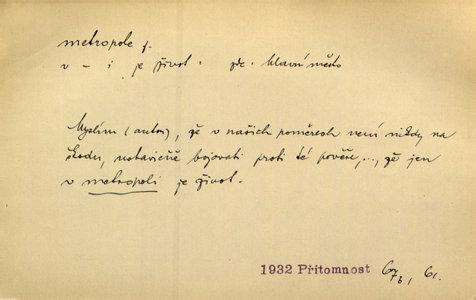 metropole f.
v – i je život. hlavní město
Myslím (autor), že v našich poměrech není nikdy na
škodu, ustavičně bojovati proti té pověře,..., že jen
v metropoli je život.
1932 Přítomnost 61.